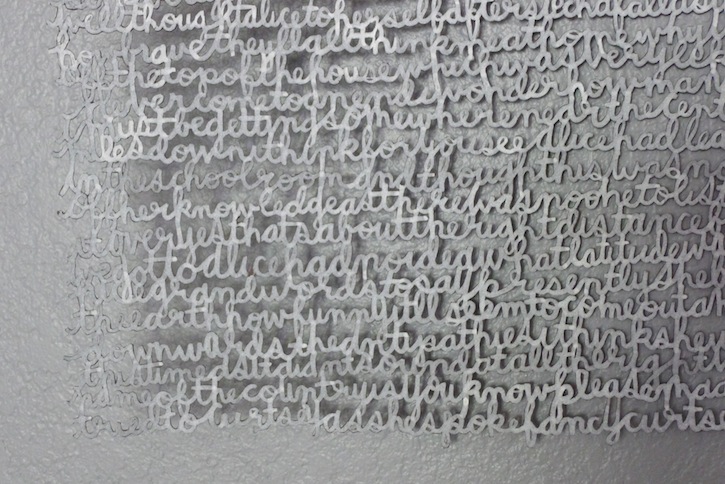 wellthoughtalicetoherselfaftersuchafallas
howbravetheyllallthinkmeathomewhyi
offthetopofthehousewhichwasverylik
nevercometoanendiwonderhowman
imustbegettingsomewherenearthecen
lesdownithinkforyouseealicehadlea
intheschoolroomandthoughthiswasn
offherknowledgeastherewasnoonetolis
itoveryesthatsabouttherightdistance
ivegottoalicehadnoideawhatlatitudew
nicegrandwordstosaypresentlyshe
theearthhowfunnyitllseemtocomeouta
downwardstheantipathiesithinkshew
thistimeasitdidntsoundatalltherigh
nameofthecountryisyouknowpleasema
triedtocurtseyasshespokefancycurts